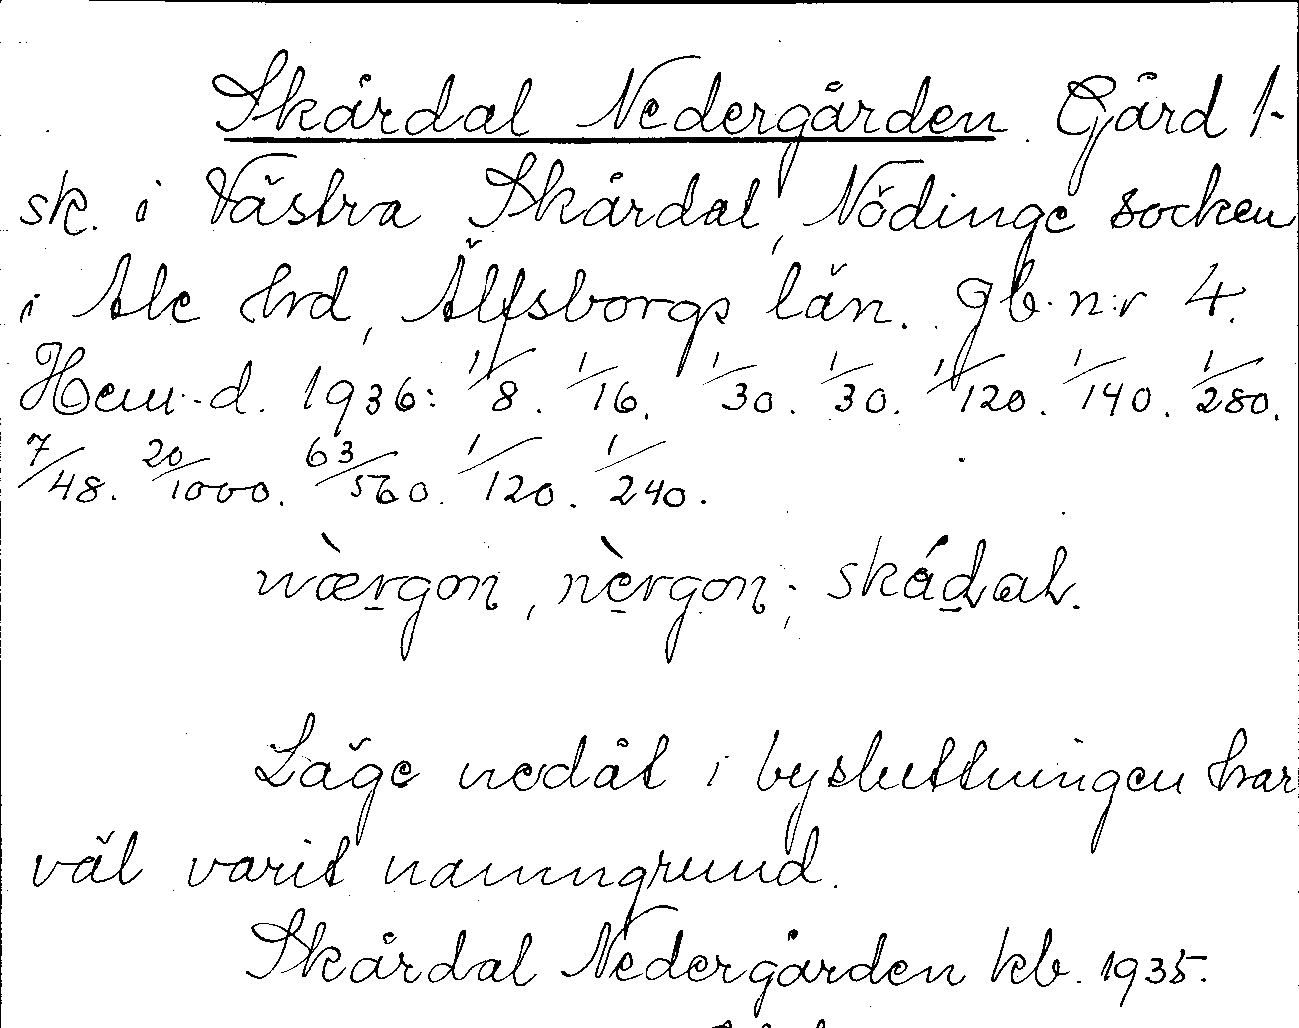 Skårdal Nedergården. Gård 1-
sk. i Västra Skårdal, Nödinge socken
i Ale hrd, Älfsborgs län. gb. n:r 4.
Hem.-d. 1936: 1/8. 1/16. 1/30. 1/30. 1/120. 1/140. 1/280.
7/48. 20/1000. 63/560. 1/120. 1/240.
nærgon, nèrgon; skádal.
Läge nedåt i bysluttningen har
väl varit namngrund.
Skårdal Nedergården kb. 1935.